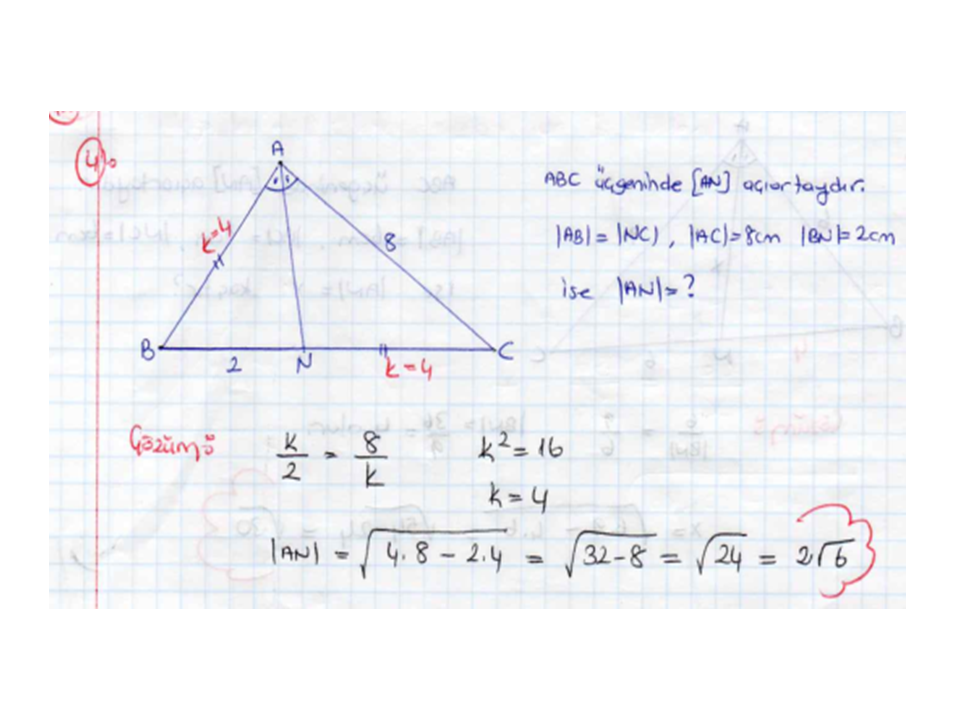 4)
A
ABC üçgeninde [AN] açıortaydır.
k=4
8
|AB| = |NC| , |AC|=8cm |BN|=2cm
ise |AN|=?
B
2
N
k=4
C
Çözüm:
k/2 = 8/k
k² = 16
k = 4
|AN| = √4.8 - 2.4 = √32-8 = √24 = 2√6